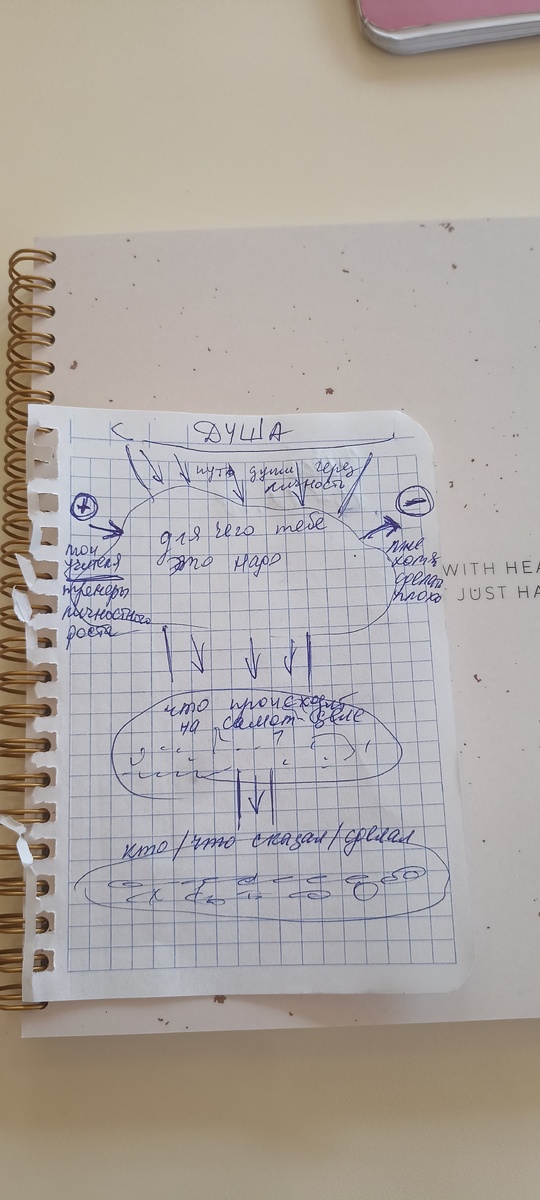 ДУША
путь души через
личность
+
-
для чего тебе
это надо
мои
учителя
тренеры
личностного
роста
мне
хотят
сделать
плохо
WITH HEA
JUST HA
что происходит
на самом деле
кто / что сказал / сделал